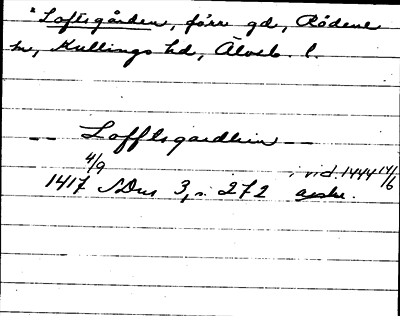 "Loftsgården, förr gd, Rödene
sn, Kullings hd, Älvsb. l.
-- Lofftsgardhin --
4/9
1417 SDns 3, s. 272 i vid. 1444 14/6
avskr.